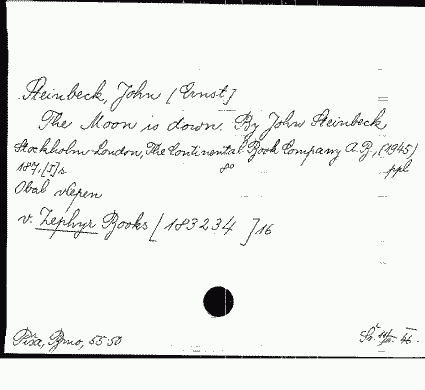 Steinbeck, John [Ernst]
The Moon is down. By John Steinbeck
Stockholm-London, The Continental Book Company A.B., (1945)
187, [5] s. 8° ppl
Obal vlepen
v. Zephyr Books [183234] 16
Píša, Brno, 55·50
46.